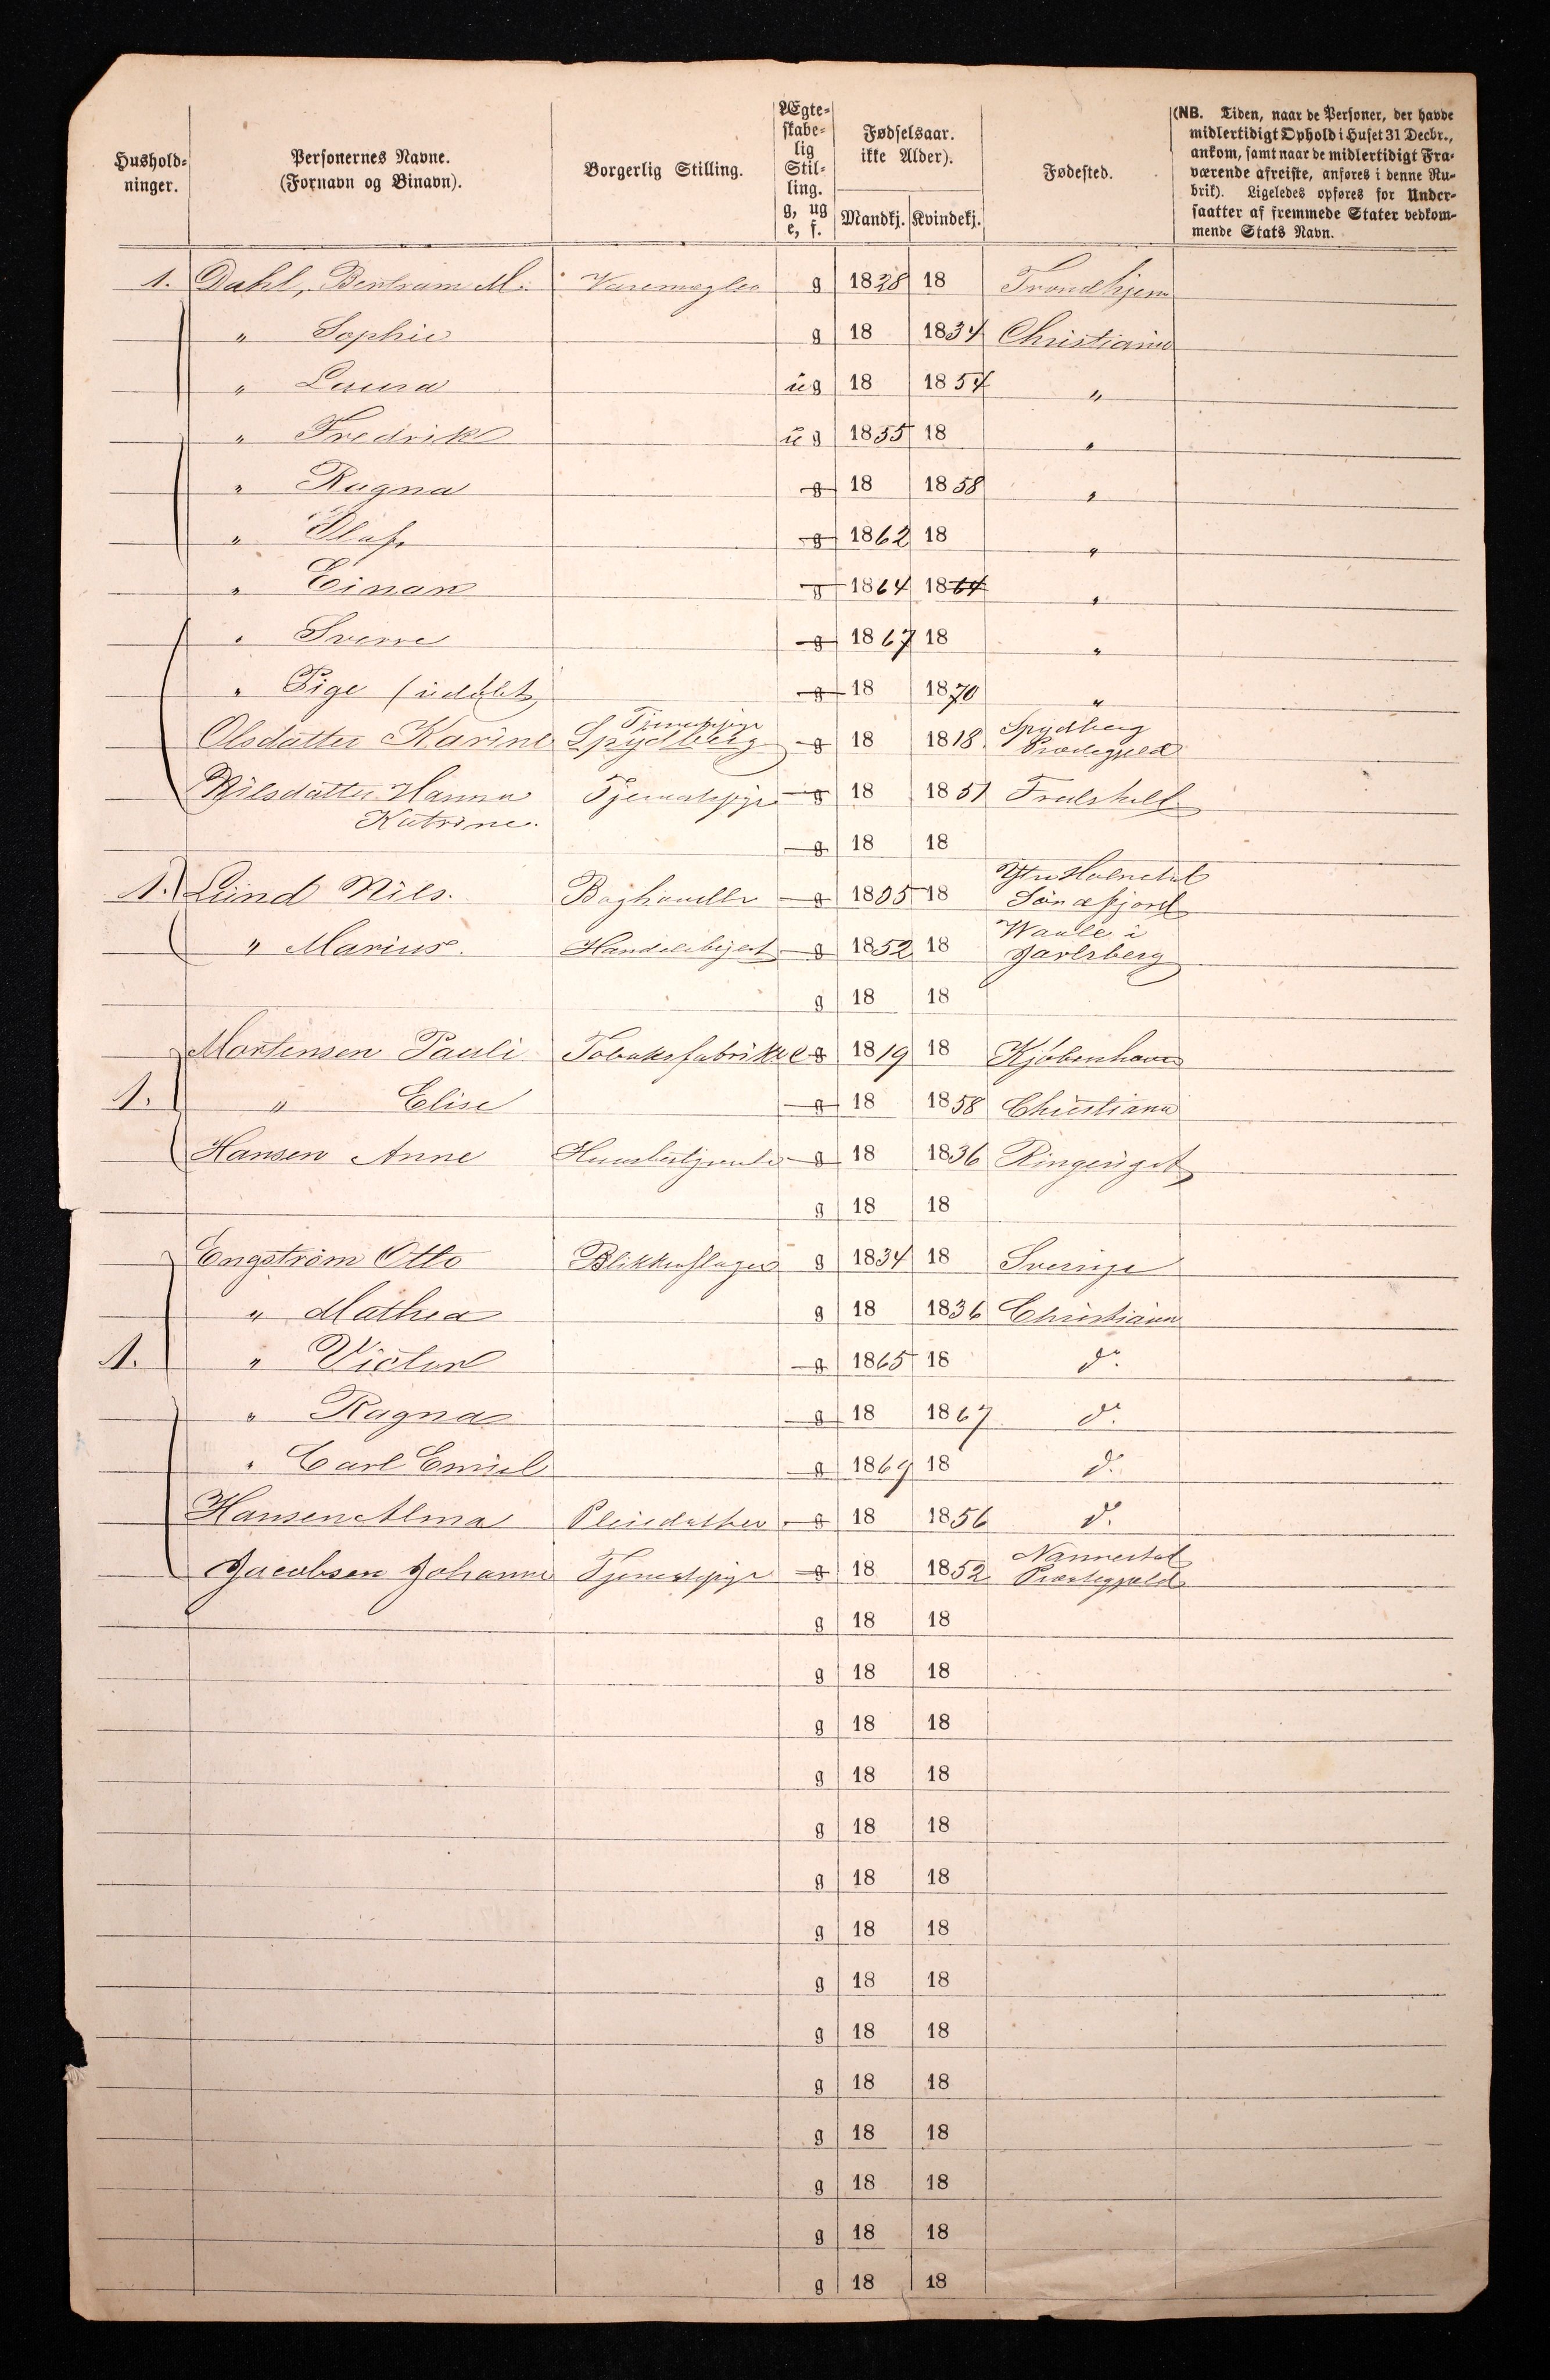 Hushold-
ninger.
Personernes Navne.
(Fornavn og Binavn).
Borgerlig Stilling.
Ægte-
skabe-
lig
Stil-
ling.
g, ug
e, f.
Fødselsaar.
ikke Alder).
Mandkj. Kvindekj.
Fødested.
(NB. Tiden, naar de Personer, der havde
midlertidigt Ophold i Huset 31 Decbr.,
ankom, samt naar de midlertidigt Fra-
værende afreiste, anføres i denne Ru-
brik). Ligeledes opføres for Under-
saatter af fremmede Stater vedkom-
mende Stats Navn.
1. Dahl, Bertram M. Varemægler g 1838 18 Trondhjem
" Sophie g 18 1834 Christiania
" Laura ug 18 1854 "
" Fredrik ug 1855 18 "
" Ragna g 18 1858 "
" Oluf g 1862 18 "
" Einar g 1864 1864 "
" Sverre g 1867 18 "
" Pige (udøbt) g 18 1870 "
Olsdatter Karine Tjenestepige Spydberg g 18 1818 Spydberg
Præstegjeld
Nilsdatter Hanna Tjenestepige g 18 1851 Fredshald
Katrine.
g 18 18
1. Lund Nils. Boghandler g 1805 18 Ytre Holmedal
Søndfjord
" Marius. Handelsbetjent g 1852 18 Waale i
Jarlsberg
g 18 18
Mortensen Pauli Tobaksfabrikk e g 1819 18 Kjøbenhavn
1. " Elise g 18 1858 Christiania
Hansen Anne Huusbestyrerinde g 18 1836 Ringeriget
g 18 18
Engström Otto Blikkenslager g 1834 18 Sverrige
" Mathea g 18 1836 Christiania
1. " Victor g 1865 18 do.
" Ragna g 18 1867 do.
" Carl Emil g 1869 18 do.
Hansen Alma Pleiedatter g 18 1856 do.
Jacobsen Johanne Tjenestepige g 18 1852 Nannestad
Præstegjeld
g 18 18
g 18 18
g 18 18
g 18 18
g 18 18
g 18 18
g 18 18
g 18 18
g 18 18
g 18 18
g 18 18
g 18 18
g 18 18
g 18 18